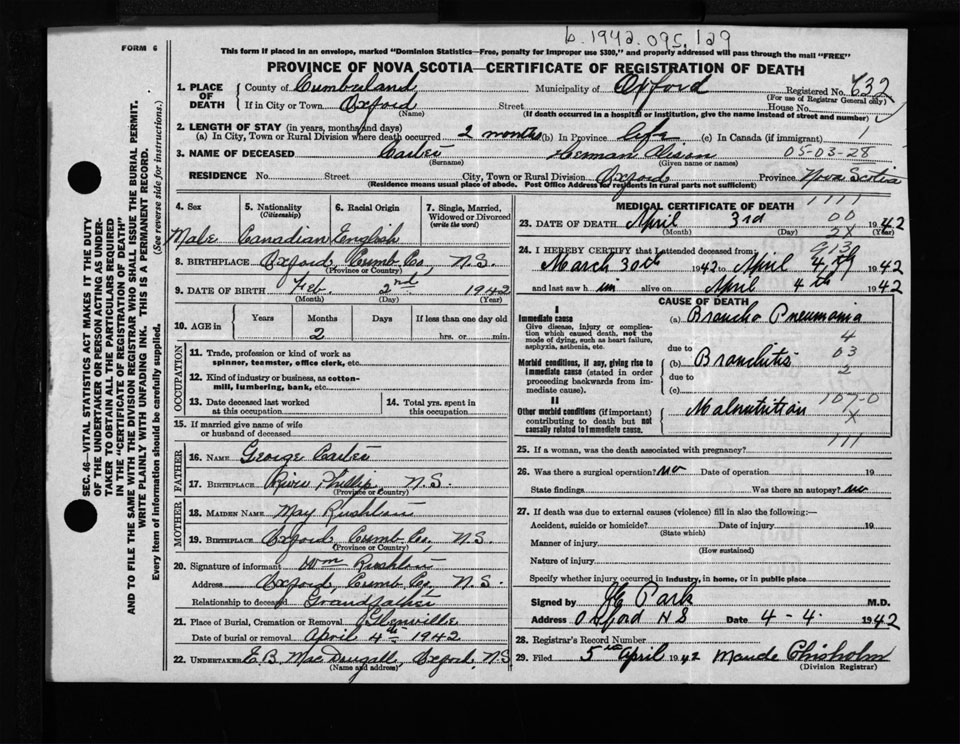 b. 1942.095.129
FORM 6
This form if placed in an envelope, marked "Dominion Statistics—Free, penalty for improper use $300," and properly addressed will pass through the mail "FREE"
PROVINCE OF NOVA SCOTIA—CERTIFICATE OF REGISTRATION OF DEATH
SEC. 46—VITAL STATISTICS ACT MAKES IT THE DUTY
OF THE UNDERTAKER OR PERSON ACTING AS UNDER-
TAKER TO OBTAIN ALL THE PARTICULARS REQUIRED
IN THE "CERTIFICATE OF REGISTRATION OF DEATH"
AND TO FILE THE SAME WITH THE DIVISION REGISTRAR WHO SHALL ISSUE THE BURIAL PERMIT.
WRITE PLAINLY WITH UNFADING INK. THIS IS A PERMANENT RECORD.
Every item of information should be carefully supplied. (See reverse side for instructions.)
1. PLACE OF DEATH County of Cumberland Municipality of Oxford Registered No. 632
(For use of Registrar General only)
If in City or Town Oxford Street House No.
(Name) (If death occurred in a hospital or institution, give the name instead of street and number)
2. LENGTH OF STAY (in years, months and days)
(a) In City, Town or Rural Division where death occurred 2 months (b) In Province life (c) In Canada (if immigrant) 1
3. NAME OF DECEASED Herman 05-03-28
(Surname) (Given name or names)
RESIDENCE No. Street City, Town or Rural Division Oxford Province Nova Scotia
(Residence means usual place of abode. Post Office Address for residents in rural parts not sufficient)
4. Sex 5. Nationality (Citizenship) 6. Racial Origin 7. Single, Married, Widowed or Divorced (write the word)
Male Canadian English
8. BIRTHPLACE Oxford, Cumb. Co., N.S.
(Province or Country)
9. DATE OF BIRTH Feb. 2nd 1942
(Month) (Day) (Year)
10. AGE in Years Months Days If less than one day old
2 hrs. or min.
OCCUPATION
11. Trade, profession or kind of work as
spinner, teamster, office clerk, etc.
12. Kind of industry or business, as cotton-
mill, lumbering, bank, etc.
13. Date deceased last worked
at this occupation
14. Total yrs. spent in
this occupation
15. If married give name of wife
or husband of deceased
FATHER
16. NAME George
17. BIRTHPLACE River Phillip, N.S.
(Province or Country)
MOTHER
18. MAIDEN NAME May Rushton
19. BIRTHPLACE Oxford, Cumb. Co., N.S.
(Province or Country)
20. Signature of informant Wm Rushton
Address Oxford, Cumb. Co., N.S.
Relationship to deceased Grandfather
21. Place of Burial, Cremation or Removal Glenville
Date of burial or removal April 4th 1942
22. UNDERTAKER E.B. MacDougall, Oxford, N.S.
(Name and address)
MEDICAL CERTIFICATE OF DEATH 1111
23. DATE OF DEATH April 3rd 00 1942
(Month) (Day) 2X (Year)
24. I HEREBY CERTIFY that I attended deceased from:
March 30th 1942 to April 4th 1942
and last saw him alive on April 4th 1942
CAUSE OF DEATH
I
Immediate cause
Give disease, injury or complica-
tion which caused death, not the
mode of dying, such as heart failure,
asphyxia, asthenia, etc.
(a) Broncho Pneumonia
4
due to
Morbid conditions, if any, giving rise to
immediate cause (stated in order
proceeding backwards from im-
mediate cause).
(b) Bronchitis 03
2
due to
(c)
107-0
II
Other morbid conditions (if important)
contributing to death but not
causally related to immediate cause.
Malnutrition 1X
111
25. If a woman, was the death associated with pregnancy?
26. Was there a surgical operation? no Date of operation 19
State findings Was there an autopsy? no
27. If death was due to external causes (violence) fill in also the following:—
Accident, suicide or homicide? Date of injury 19
(State which)
Manner of injury
(How sustained)
Nature of injury
Specify whether injury occurred in industry, in home, or in public place
Signed by Park M.D.
Address Oxford NS Date 4-4- 1942
28. Registrar's Record Number
29. Filed 5th April 1942 Maude Chisholm
(Division Registrar)